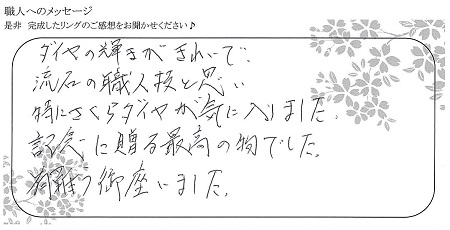 職人へのメッセージ
是非 完成したリングのご感想をお聞かせください♪
ダイヤの輝きがきれいで、
流石の職人技と思い
特にさくらダイヤが気に入りました。
記念に贈る最高の物でした。
有難う御座いました。